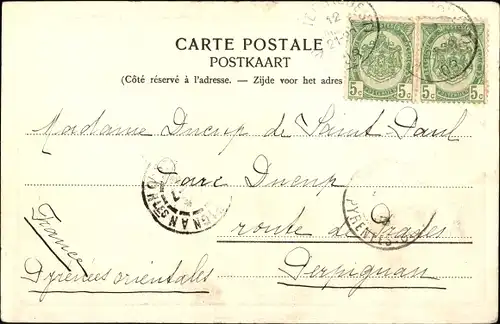 CARTE POSTALE
POSTKAART
(Côté réservé à l'adresse. — Zijde voor het adres
5c 5c 5c 5c
Madame Ducup de Saint Paul
Parc Ducup
route de Prades
Perpignan
France
Pyrénées orientales
PYRENEES-O